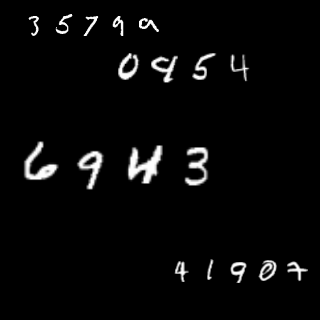 35799
0954
6943
41907